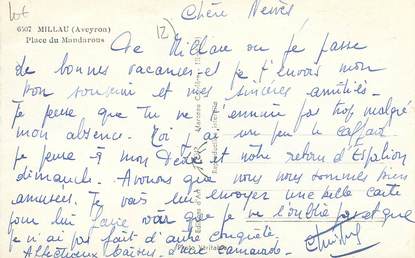 Chère Neives
6507 MILLAU (Aveyron)
Place du Mandarous
De Millau ou je passe
de bonnes vacances et je t'envois mon
bon souvenir et mes sincères amitiés.
Je pense que tu ne t'ennuie pas trop malgré
mon absence. Moi j'ai un peu le caffard
je pense à mon Dédé et notre retour d'Espalion
dimanche. Avouons que nous nous sommes bien
amusées. Je vais lui envoyer une belle carte
pour lui faire voir que je ne l'oublie pas et que
je n'ai pas fait d'autre conquête.
Affectueux baisers d'une camarade.